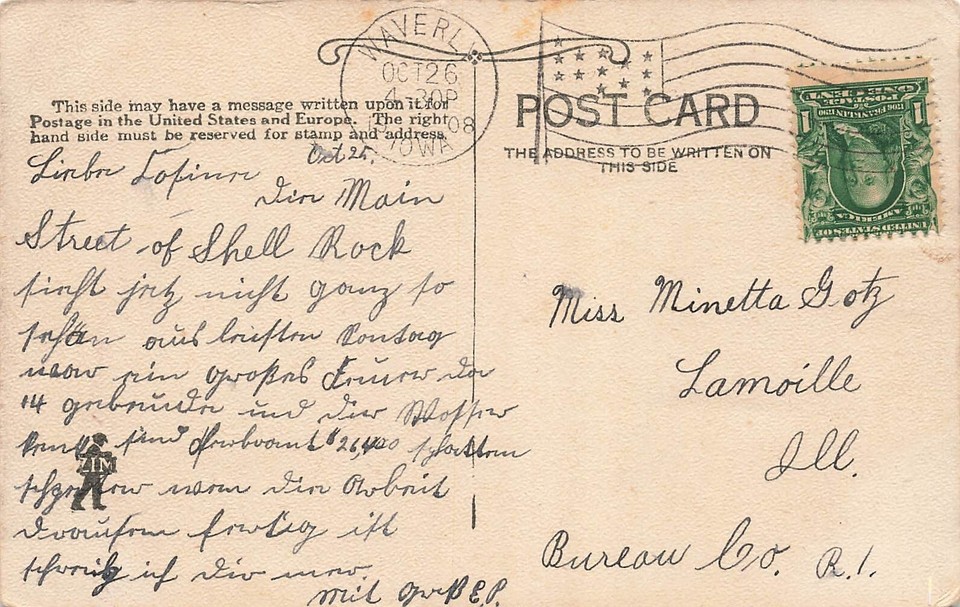 This side may have a message written upon it for
Postage in the United States and Europe. The right
hand side must be reserved for stamp and address.
WAVERLY
OCT 26
4-30P
08
IOWA
POST CARD
THE ADDRESS TO BE WRITTEN ON
THIS SIDE
UNITED STATES OF
AMERICA
POSTAGE
ONE CENT
1
1
Oct 25,
Liebe
Die Main
Street of Shell Rock
sieht jetz nicht ganz so
schön aus leisten Sontag
war ein großes Feuer da
14 gebeude und die Wasser
sind ferbrannt $26,400 schatten
wen die Arbeit
draussen fertig ist
schreib ich dir mer.
Mit Gruß E.P.
ZIM
Miss Minetta Gotz
Lamoille
Ill.
Bureau Co. R.1.